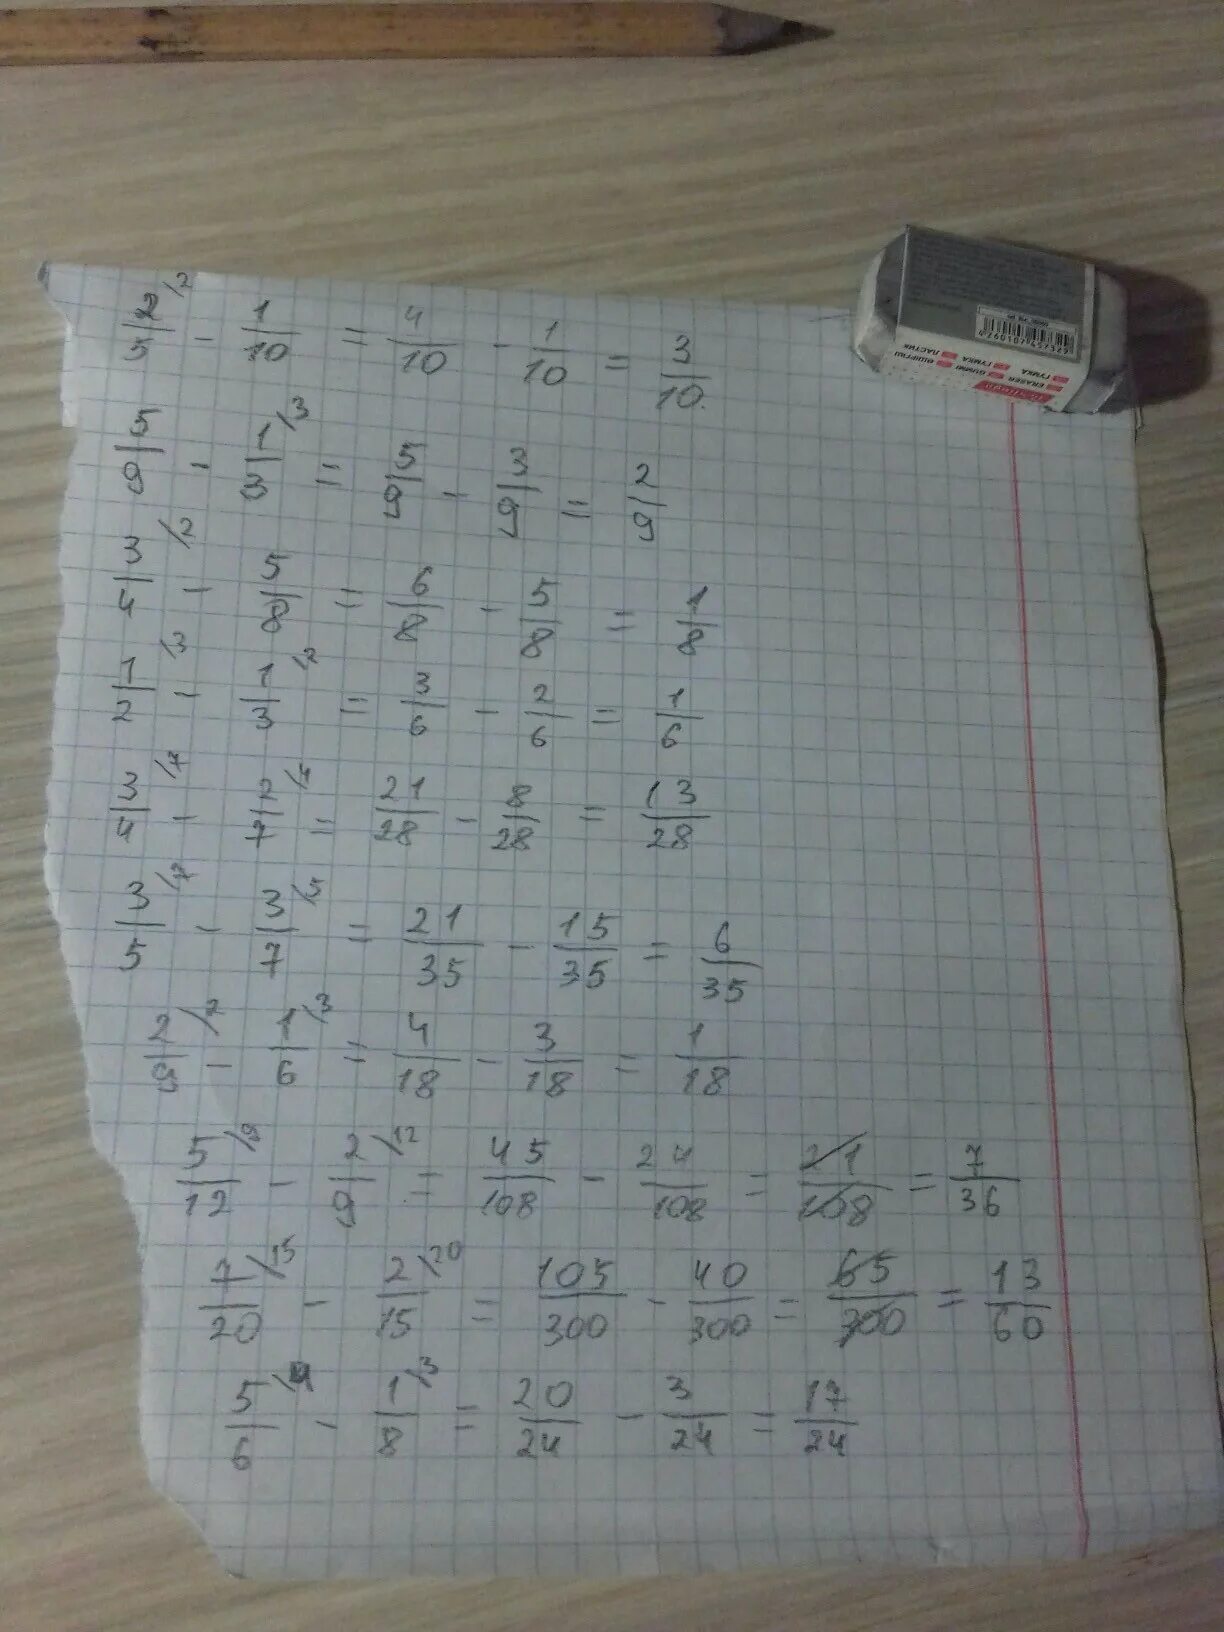 2/5\2 - 1/10 = 4/10 - 1/10 = 3/10.
5/9 - 1/3\3 = 5/9 - 3/9 = 2/9
3/4\2 - 5/8 = 6/8 - 5/8 = 1/8
1/2\3 - 1/3\2 = 3/6 - 2/6 = 1/6
3/4\7 - 2/7\4 = 21/28 - 8/28 = 13/28
3/5\7 - 3/7\5 = 21/35 - 15/35 = 6/35
2/9\2 - 1/6\3 = 4/18 - 3/18 = 1/18
5/12\9 - 2/9\12 = 45/108 - 24/108 = 21/108 = 7/36
7/20\15 - 2/15\20 = 105/300 - 40/300 = 65/300 = 13/60
5/6\4 - 1/8\3 = 20/24 - 3/24 = 17/24
ERASER GUMMI ӨШІРГІШ
ГУМКА ГУМКА ЛАСТИК